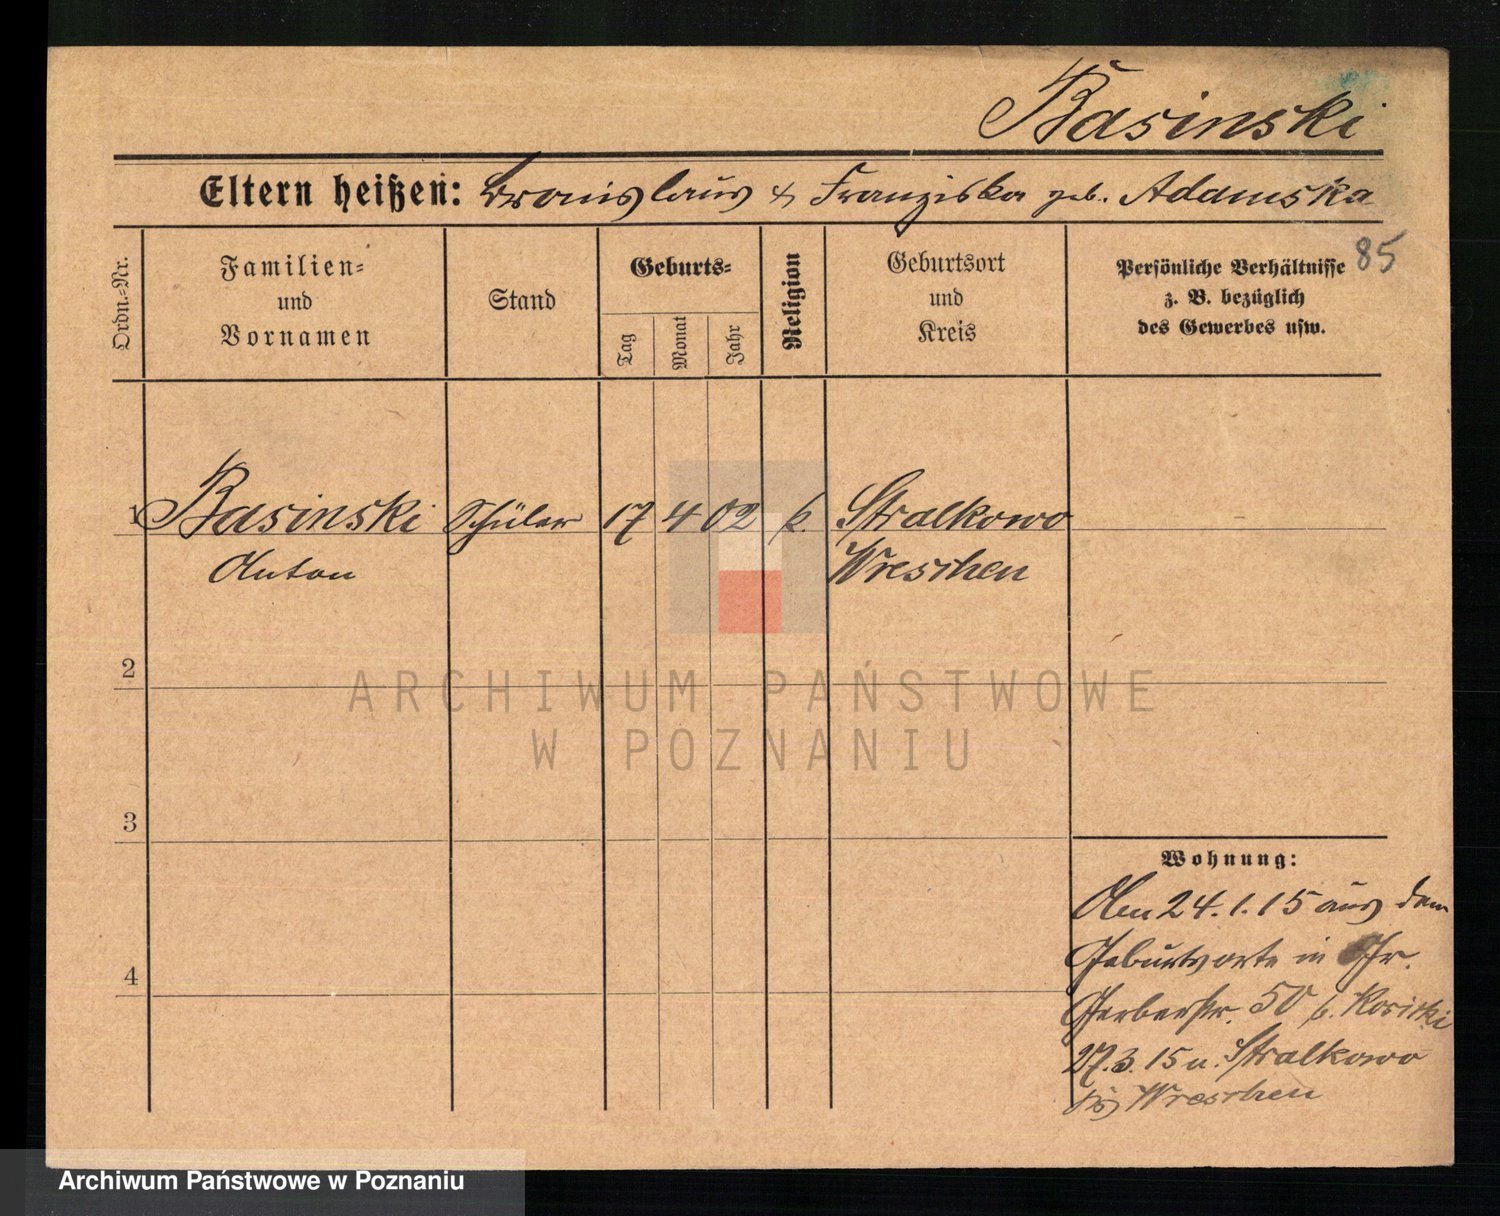 Basinski
Eltern heißen: Bronislaus & Franziska geb. Adamska
85
Ordn.-Nr.
Familien-
und
Vornamen
Stand
Geburts-
Tag
Monat
Jahr
Religion
Geburtsort
und
Kreis
Persönliche Verhältnisse
z. B. bezüglich
des Gewerbes usw.
1 Basinski Schüler 17 4 02 k. Stralkowo
Anton Wreschen
2
3
4
Wohnung:
Den 24.1.15 aus dem
Geburtsorte in Gr.
Gerberstr. 50 b.
27.3.15 n. Stralkowo
Wreschen
ARCHIWUM PAŃSTWOWE
W POZNANIU
Archiwum Państwowe w Poznaniu